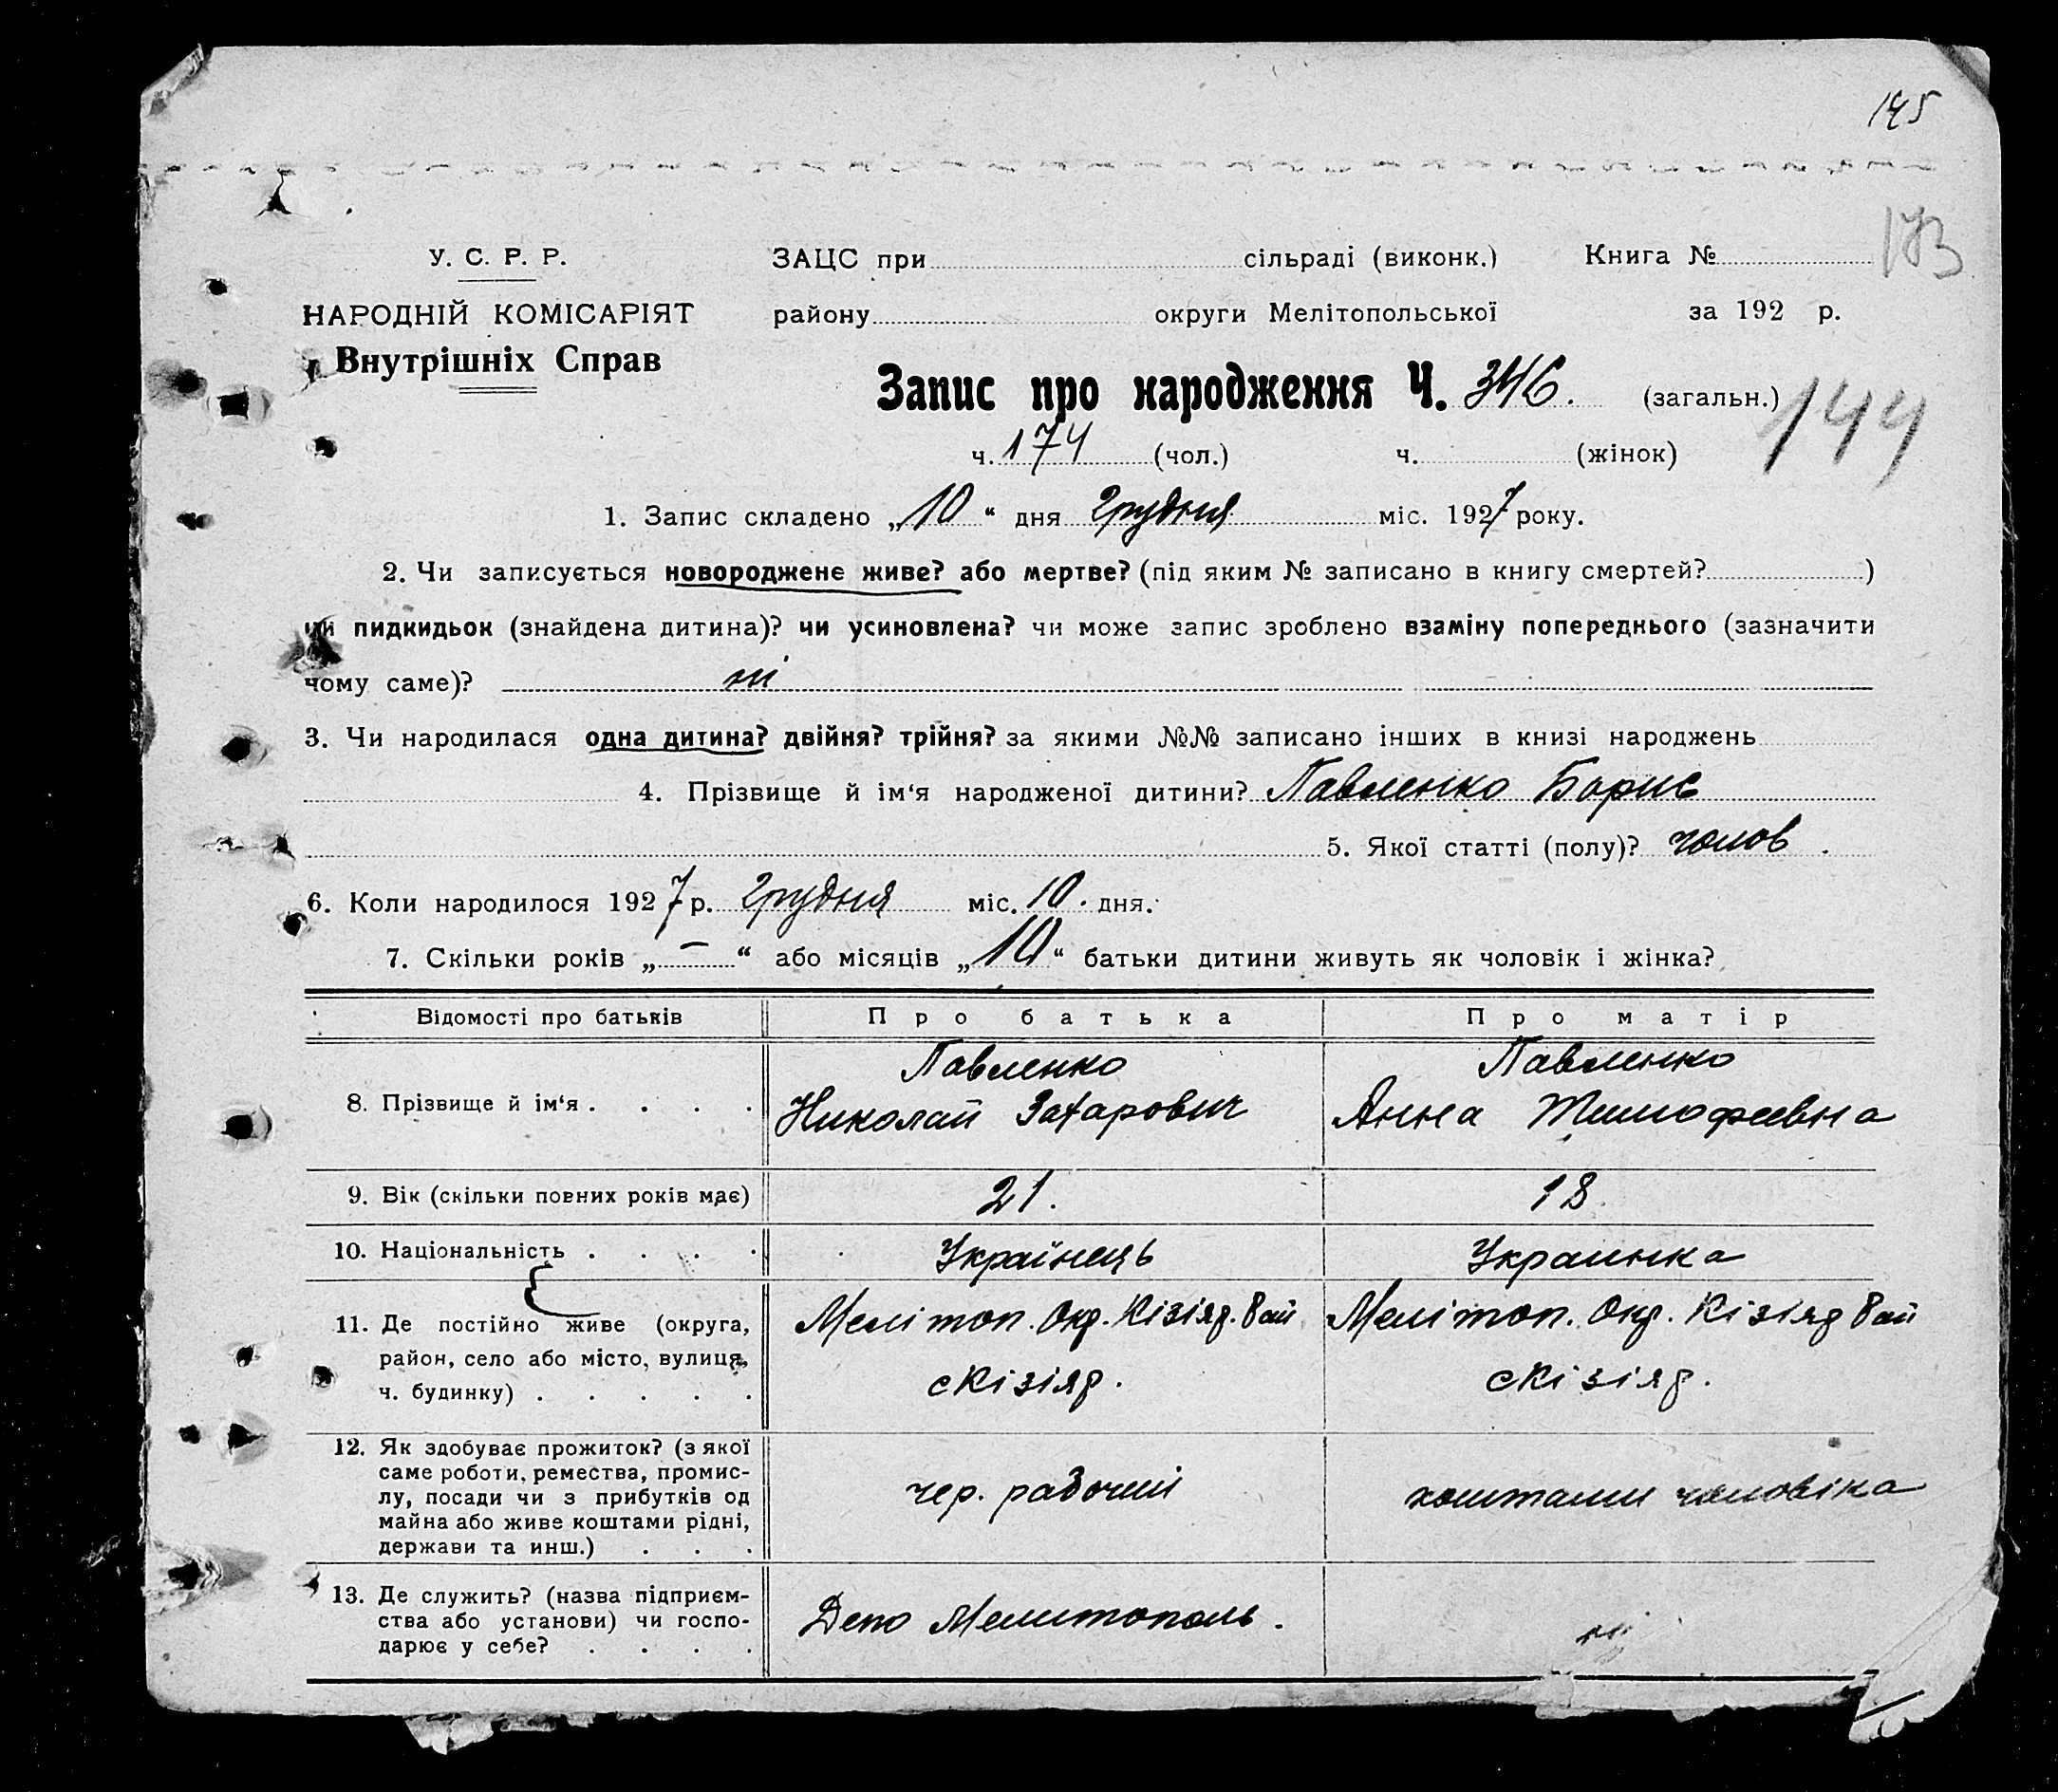 145
У. С. Р. Р.
ЗАЦС при сільраді (виконк.) Книга №
173
НАРОДНІЙ КОМІСАРІЯТ
району округи Мелітопольської за 192 р.
Внутрішніх Справ
Запис про народження Ч. 346. (загальн.)
144
ч. 174 (чол.) ч. (жінок)
1. Запис складено „10“ дня Грудня міс. 1927 року.
2. Чи записується новороджене живе? або мертве? (під яким № записано в книгу смертей? )
чи пидкидьок (знайдена дитина)? чи усиновлена? чи може запис зроблено взаміну попереднього (зазначити
чому саме)? ні
3. Чи народилася одна дитина? двійня? трійня? за якими №№ записано інших в книзі народжень
4. Прізвище й ім‘я народженої дитини? Павленко Борис
5. Якої статті (полу)? чолов.
6. Коли народилося 1927 р. Грудня міс. 10. дня.
7. Скільки років „—“ або місяців „10“ батьки дитини живуть як чоловік і жінка?
Відомості про батьків Про батька Про матір
Павленко Павленко
8. Прізвище й ім‘я . . . . Николай Захарович Анна Тимофеевна
9. Вік (скільки повних років має) 21. 18.
10. Національність . . . . Українець Украинка
11. Де постійно живе (округа, Меліточ. Окр. Кізіяр. Рай Меліточ. Окр. Кізіяр Рай
район, село або місто, вулиця, с Кізіяр. с Кізіяр.
ч. будинку) . . . . .
12. Як здобуває прожиток? (з якої
саме роботи, ремества, промис-
лу, посади чи з прибутків од чер. рабочий коштами чоловіка
майна або живе коштами рідні,
держави та инш.) . . .
13. Де служить? (назва підприєм-
ства або установи) чи госпо- Депо Мелитополь. ні
дарює у себе? . . . .